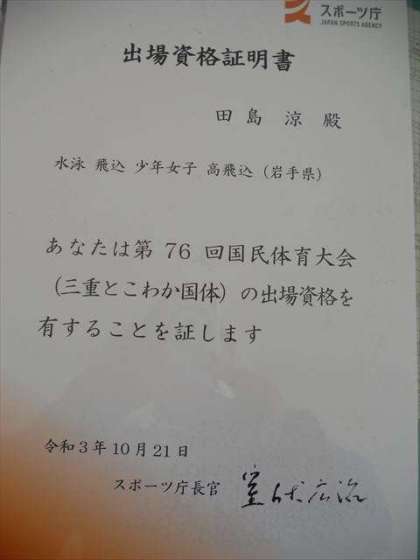 スポーツ庁
JAPAN SPORTS AGENCY
出場資格証明書
田島 涼 殿
水泳 飛込 少年女子 高飛込（岩手県）
あなたは第 76 回国民体育大会
（三重とこわか国体）の出場資格を
有することを証します
令和３年 10 月 21 日
スポーツ庁長官 室伏広治